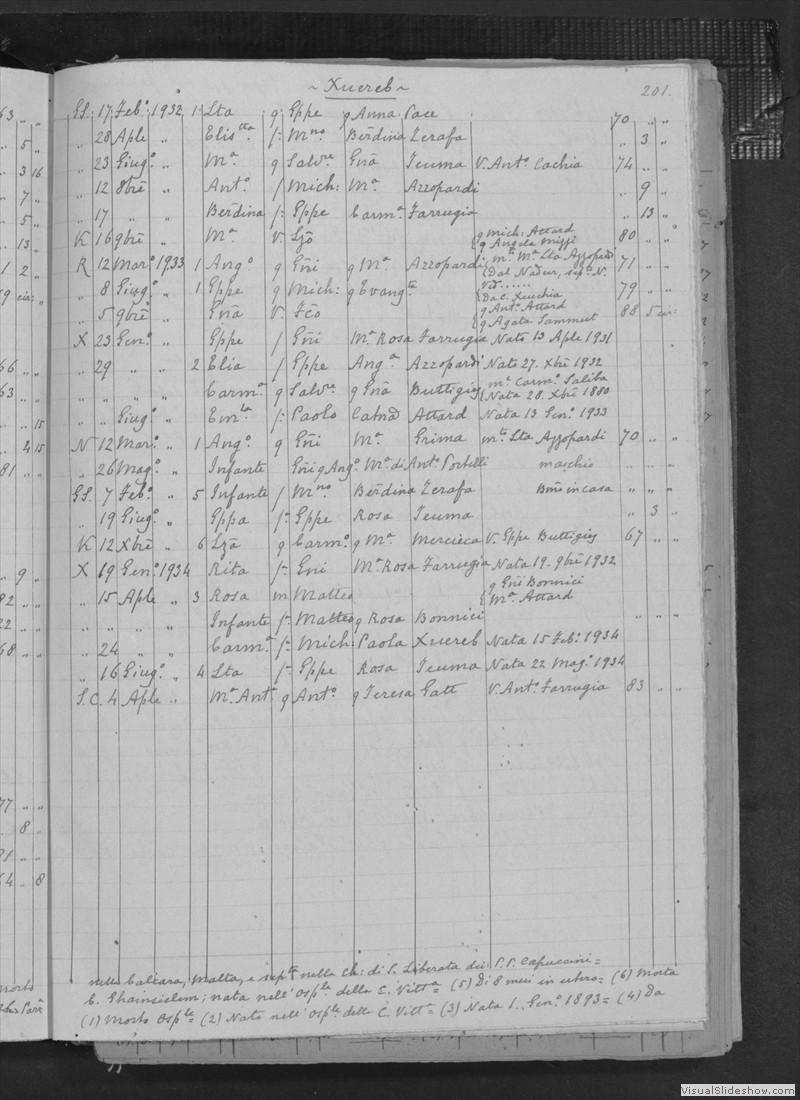 ~ Xuereb ~ 201.
GS. 17 Feb.º 1932 1 Lta g Eppe g Anna Pace 70 „ „
„ 28 Aple „ Elis.tta f: M.no Berdina Zerafa „ 3 „
„ 23 Giug.º „ M.a g Salv.re Gnã Teuma V. Ant.º Cachia 74 „ „
„ 12 8brē „ Ant.º f Mich: M.a Azzopardi „ 9 „
„ 17 „ „ Berdina f: Eppe Carm.a Farrugia „ 13 „
K 16 9brē „ M.a v. Lzõ { g Mich: Attard
g Angela Mizzi 80 „ „
R 12 Mar.º 1933 1 Ang.º g Gñi g M.a Azzopardi { m.to M.a Lta Azzopardi
Dal Nadur, sep.º N. 71 „ „
„ 8 Giug.º „ 1 Eppe g Mich: g Evang.ta { Ved......
Da C. Xeuchia 79 „ „
„ 5 9brē „ Gnã v. Fcõ { g Ant.º Attard
g Agata Sammut 88 5 cir:
X 23 Gen.º „ Eppe f Gñi M.a Rosa Farrugia Nato 13 Aple 1931
„ 29 „ „ 2 Elia f Eppe Ang.a Azzopardi Nato 27. Xbrē 1932
Carm.a g Salv.re g Gnã Buttigieg { m.a Carm.º Saliba
Nata 28. Xbrē 1880
„ „ Giug.º „ Em.la f: Paolo Catnã Attard Nata 13 Gen.º 1933
N 12 Mar.º „ 1 Ang.º g Gñi M.a Grima m.to Lta Azzopardi 70 „ „
„ 26 Mag.º „ Infante Gñi g Ang.º M.a di Ant.º Portelli maschio „ „ „
GS. 7 Feb.º „ 5 Infante f M.no Berdina Zerafa in casa „ „ „
„ 19 Giug.º „ Eppa f: Eppe Rosa Teuma „ 3 „
K 12 Xbrē „ 6 Lzã g Carm.º g M.a Mercieca V. Eppe Buttigieg 67 „ „
X 19 Gen.º 1934 Rita f: Gñi M.a Rosa Farrugia Nata 19. 9brē 1932
„ 15 Aple „ 3 Rosa m Matteo { g Gñi Bonnici
M.a Attard
„ „ „ „ Infante f: Matteo g Rosa Bonnici „ „ „
„ 24 „ „ Carm.a f: Mich: Paola Xuereb Nata 15 Feb.º 1934
„ 16 Giug.º „ 4 Lta f: Eppe Rosa Teuma Nata 22 Mag.º 1934
S.C. 4 Aple „ M.a Ant.a g Ant.º g Teresa Gatt V. Ant.º Farrugia 83 „ „
nella Calcara, Malta, e sep.ta nella Ch: di S. Liberata dei P.P. Capuccini =
C. Ghainsielem; nata nell' Osp.le della C. Vitt.a = (5) Di 8 mesi in utero = (6) Morta
(1) Morto Osp.le = (2) Nato nell' Osp.le della C. Vitt.a = (3) Nata 1. Gen.º 1893 = (4) Da
VisualSlideshow.com